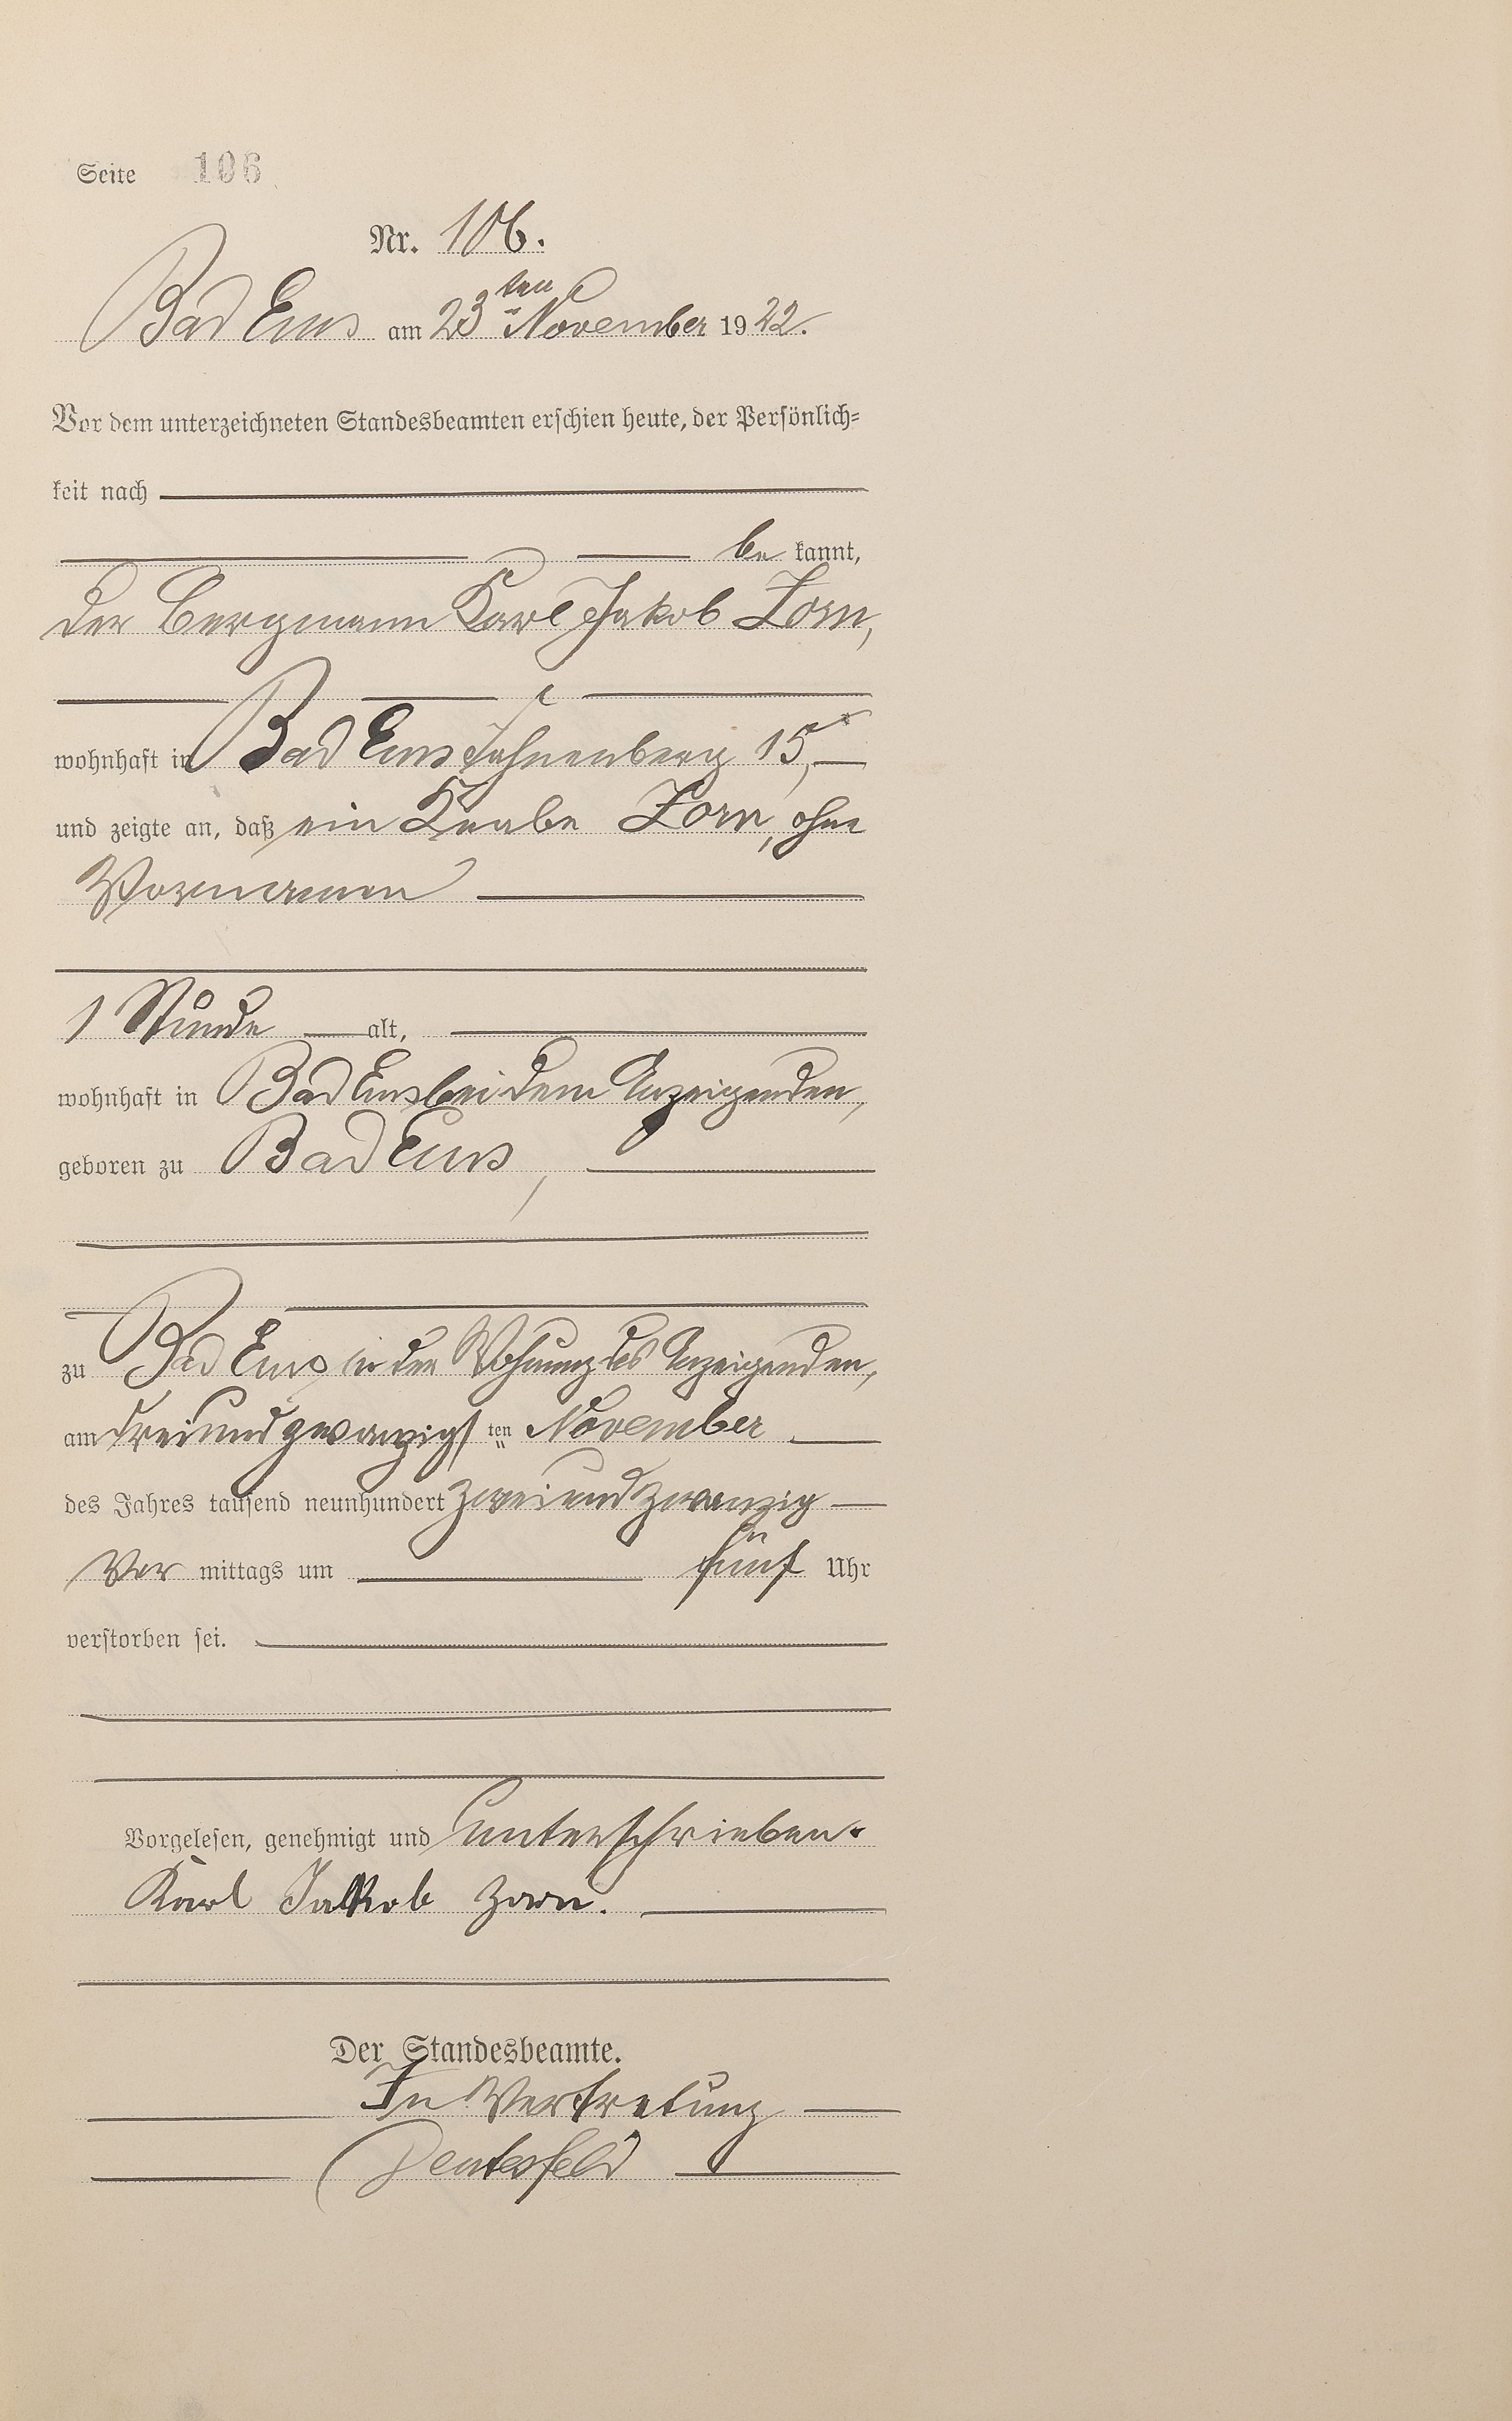 Seite 106
Nr. 106.
Bad Ems am 23ten November 1922.
Vor dem unterzeichneten Standesbeamten erschien heute, der Persönlich-
keit nach
be kannt,
der Bergmann Karl Jakob Zorn,
wohnhaft in Bad Ems Fahnenberg 15,
und zeigte an, daß ein Knabe Zorn, ohne
Vornamen
1 Stunde alt,
wohnhaft in Bad Ems bei dem Anzeigenden,
geboren zu Bad Ems,
zu Bad Ems in der Wohnung des Anzeigenden,
am dreiundzwanzigsten November
des Jahres tausend neunhundert zweiundzwanzig
Vor mittags um fünf Uhr
verstorben sei.
Vorgelesen, genehmigt und unterschrieben.
Karl Jakob Zorn.
Der Standesbeamte.
In Vertretung